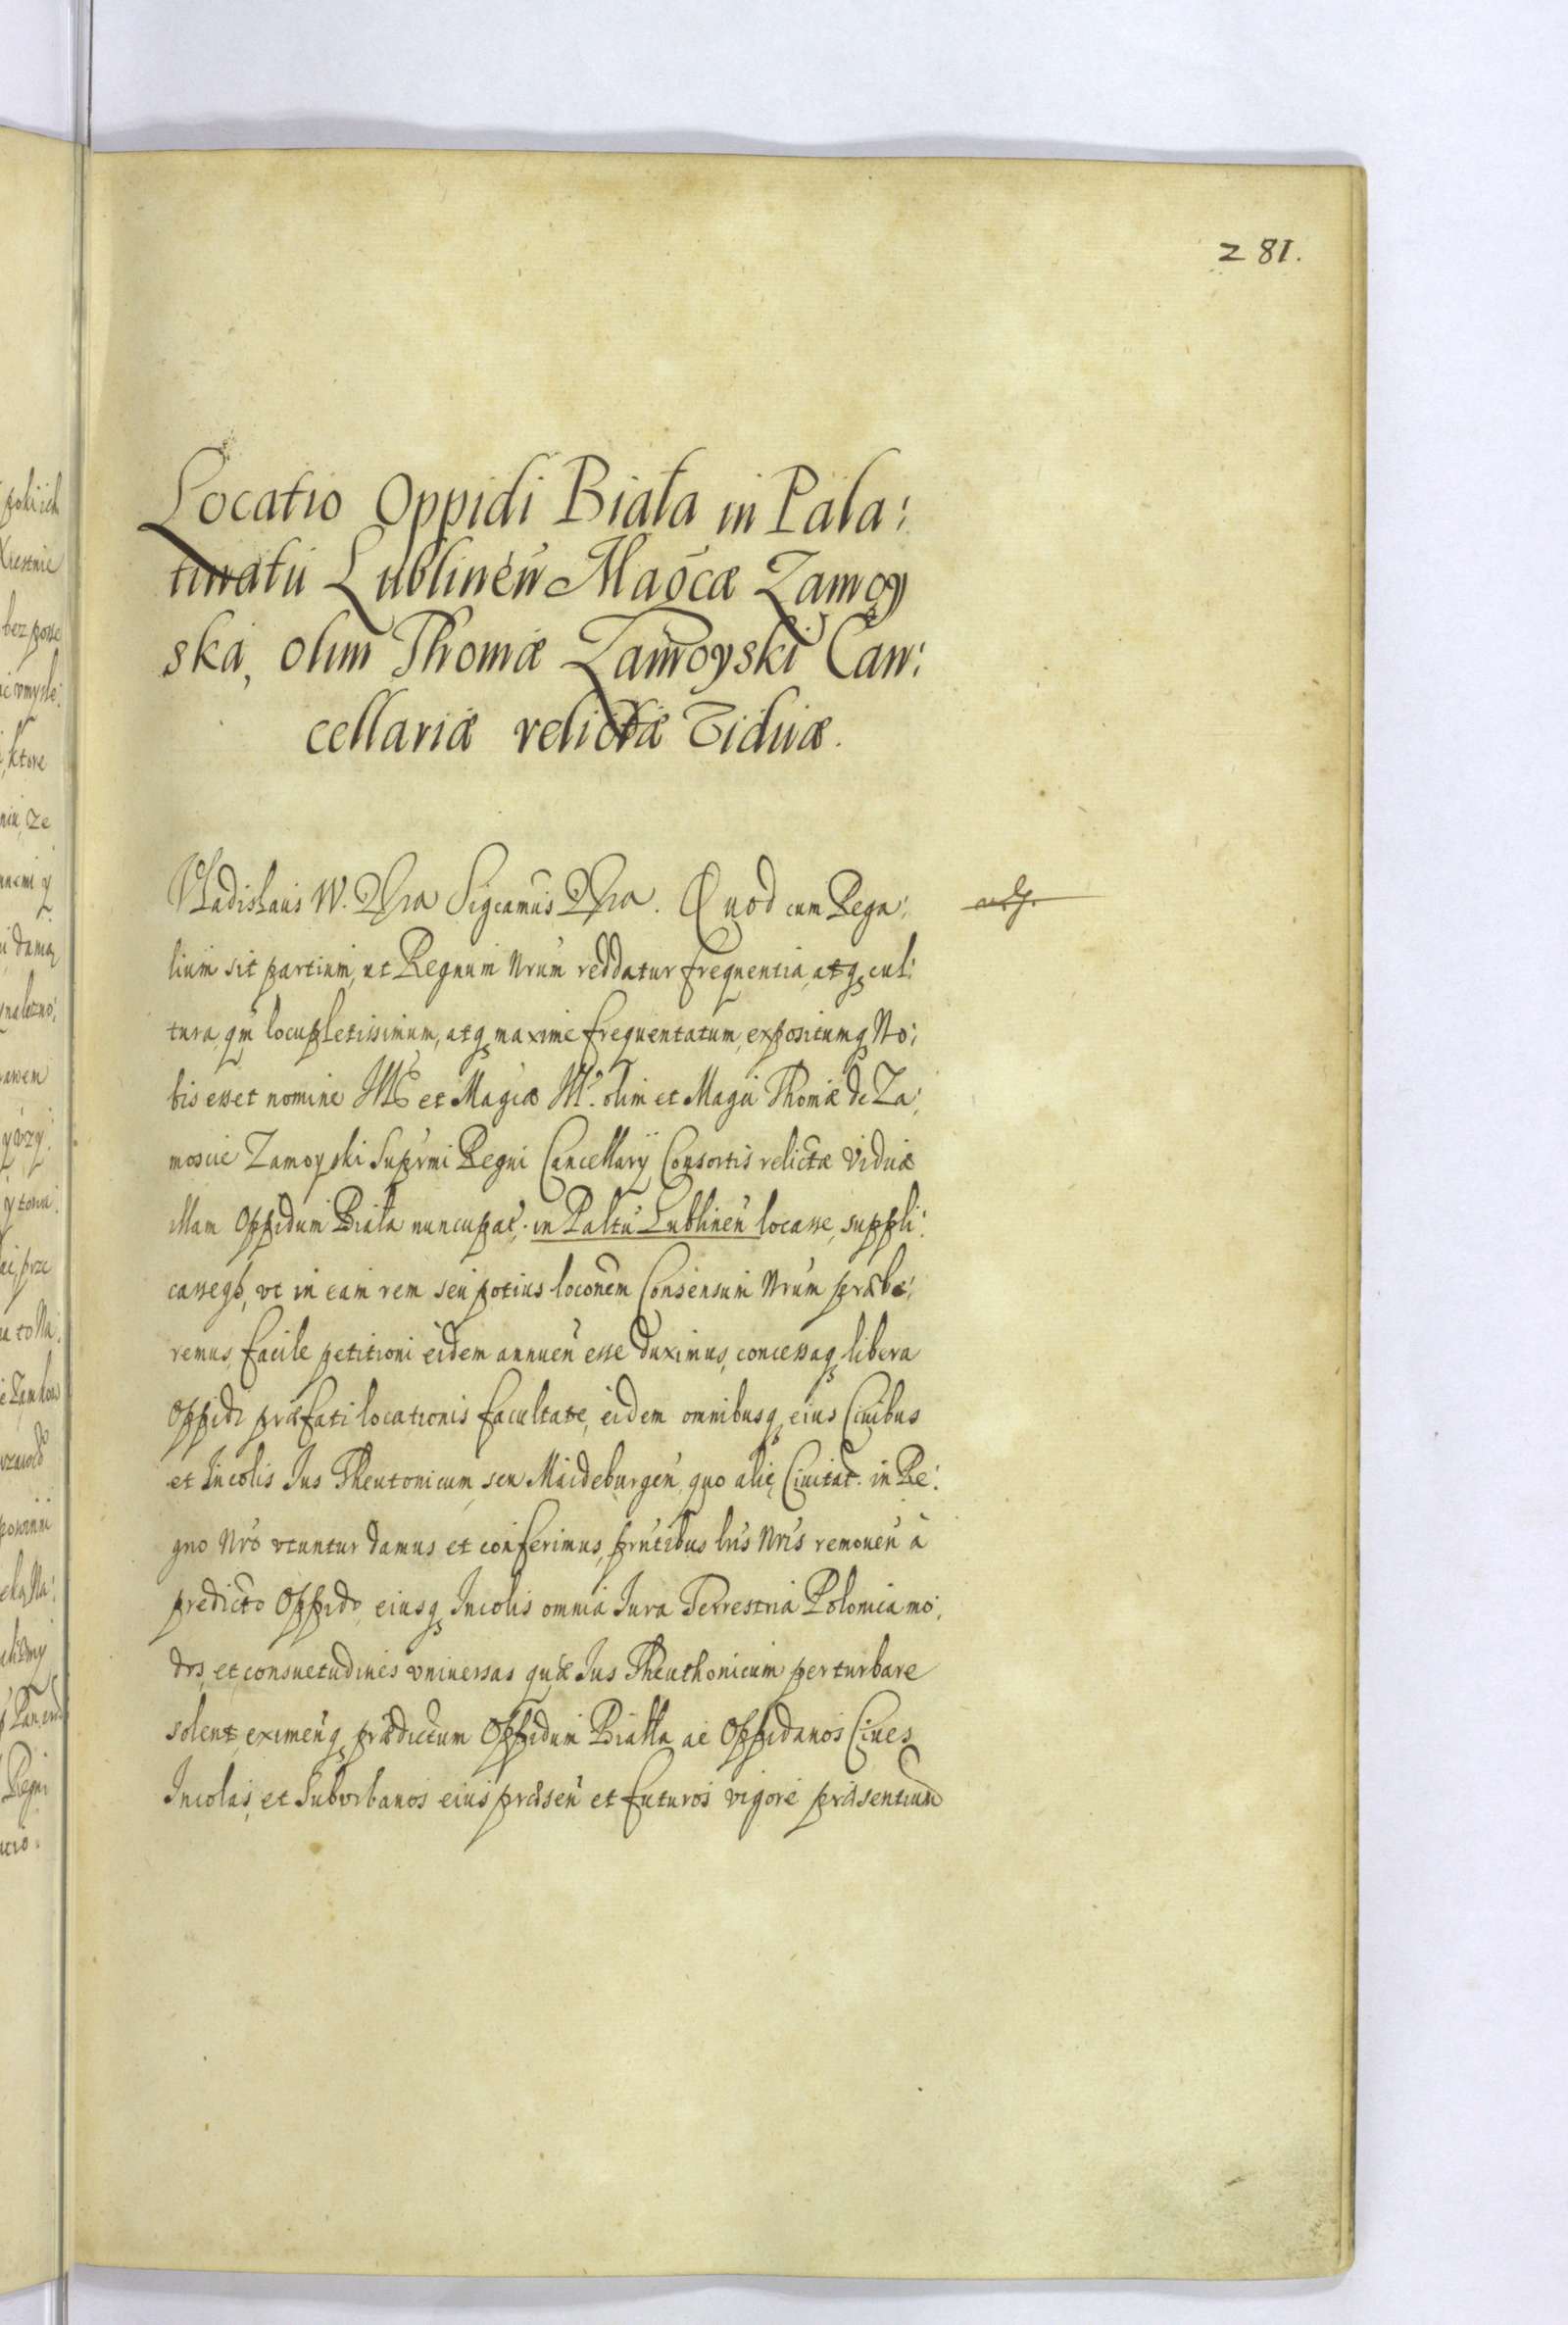 281.
Locatio Oppidi Biała in Pala:
tinatu Lublineñ Magcæ Zamoy
ska, olim Thomæ Zamoyski Can:
cellariæ relictæ Viduæ.
Vladislaus IV. Sigcamus Quod cum Rega:
lium sit partium, ut Regnum Nrum reddatur frequentia, atq cul:
tura qm locupletissimum, atq maxime frequentatum, expositumq No:
bis esset nomine et Magcæ olim et Magci Thomæ de Za:
moscie Zamoyski Suprmi Regni Cancellarÿ Consortis relictæ Viduæ
illam Oppidum Biała nuncupat. in Paltu Lublineñ locasse, suppli:
casseqȝ, vt in eam rem seu potius loconem Consensum Nrum præbe:
remus, facile petitioni eidem annueñ esse duximus, concessaq libera
Oppidi præfati locationis facultate, eidem omnibusq eius Ciuibus
et Incolis Ius Theutonicum, seu Maideburgeñ quo aliæ Ciuitat. in Re:
gno Nro vtuntur damus et conferimus, prntibus lris Nris remoueñ à
predicto Oppido, eiusq Incolis omnia Iura Terrestria Polonica mo:
dos, et consuetudines vniuersas quæ Ius Theuthonicum perturbare
solent, eximeñq prædictum Oppidum Białla ac Oppidanos Ciues
Incolas, et Suburbanos eius præseñ et futuros vigore præsentium